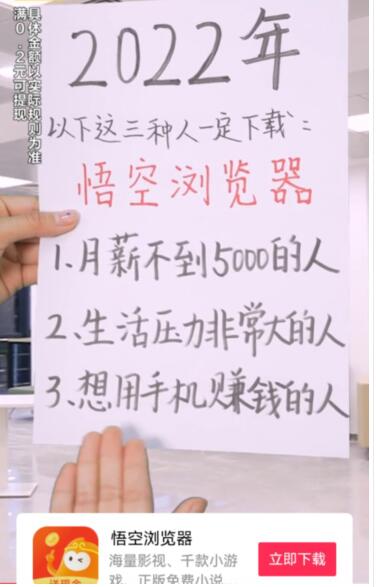 具体金额以实际规则为准
满0.2元可提现
2022年
以下这三种人一定下载:
悟空浏览器
1.月薪不到5000的人
2.生活压力非常大的人
3.想用手机赚钱的人
送现金
悟空浏览器
海量影视、千款小游
戏、正版免费小说...
立即下载